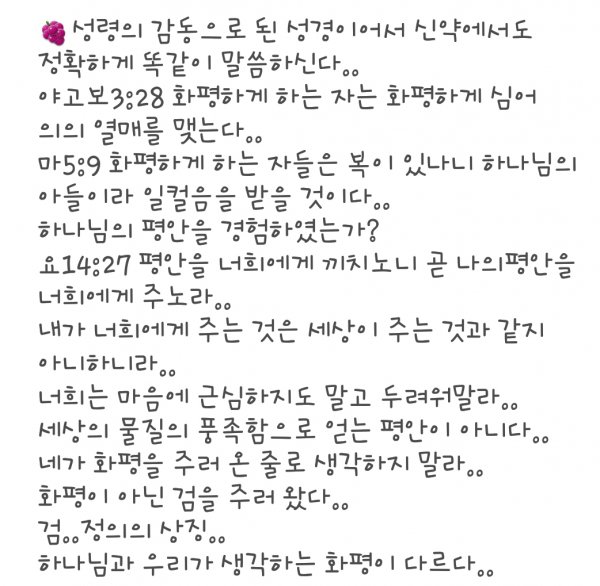 성령의 감동으로 된 성경이어서 신약에서도
정확하게 똑같이 말씀하신다..
야고보3:28 화평하게 하는 자는 화평하게 심어
의의 열매를 맺는다..
마5:9 화평하게 하는 자들은 복이 있나니 하나님의
아들이라 일컬음을 받을 것이다..
하나님의 평안을 경험하였는가?
요14:27 평안을 너희에게 끼치노니 곧 나의평안을
너희에게 주노라..
내가 너희에게 주는 것은 세상이 주는 것과 같지
아니하니라..
너희는 마음에 근심하지도 말고 두려워말라..
세상의 물질의 풍족함으로 얻는 평안이 아니다..
네가 화평을 주러 온 줄로 생각하지 말라..
화평이 아닌 검을 주러 왔다..
검..정의의 상징..
하나님과 우리가 생각하는 화평이 다르다..